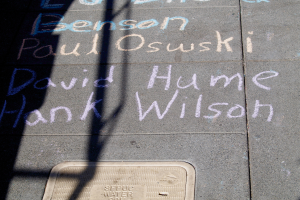 Benson
Paul Oswski
David Hume
Hank Wilson
WATER